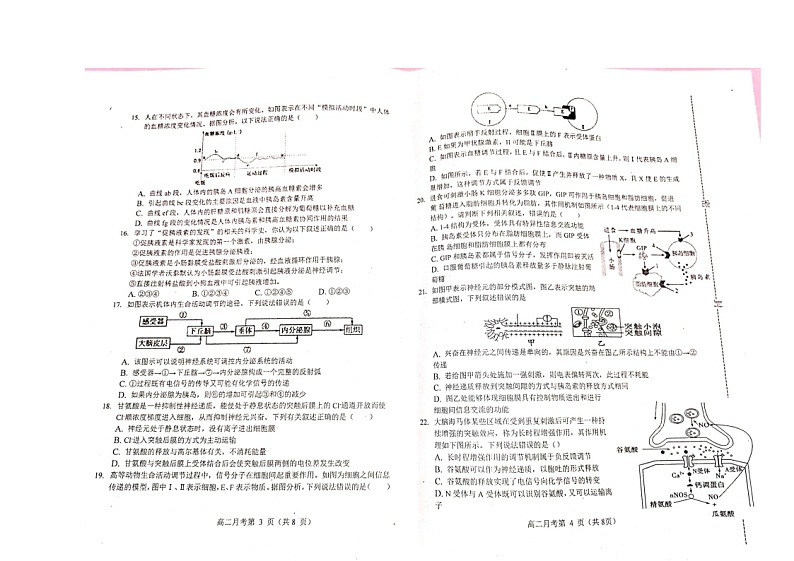 15. 人在不同状态下，其血糖浓度会有所变化，如图表示在不同“模拟活动时段”中人体
的血糖浓度变化情况。据图分析，以下说法正确的是（　　）
血糖浓度（g·L⁻¹）
1.2
0.9
0.6
吃饭
吃饭后反应
运动过程
模拟活动时段
A. 曲线 ab 段，人体内的胰岛 A 细胞分泌的胰高血糖素会增多
B. 引起曲线 bc 段变化的主要原因是血液中胰高血糖素含量升高
C. 曲线 ef 段，人体内的肝糖原和肌糖原会直接分解为葡萄糖以补充血糖
D. 曲线 fg 段的变化情况是人体内胰岛素和胰高血糖素协同作用的结果
16. 学习了“促胰液素的发现”的相关的科学史，你认为以下叙述正确的是（　　）
①促胰液素是科学家发现的第一个激素，由胰腺分泌；
②促胰液素的作用是促进胰腺分泌胰液；
③促胰液素是小肠黏膜受盐酸刺激后分泌的，经血液循环作用于胰腺；
④法国学者沃泰默认为小肠黏膜受盐酸刺激引起胰液分泌是神经调节；
⑤直接注射稀盐酸到小狗血液中可引起胰液增加。
A. ②③④　B. ①②③④　C. ①②④⑤　D. ①③⑤
17. 如图表示机体内生命活动调节的途径，下列说法错误的是（　　）
感受器
大脑皮层
下丘脑
垂体
内分泌腺
组织
① ② ③ ④ ⑤ ⑥
A. 该图示可以说明神经系统可调控内分泌系统的活动
B. 感受器→①→下丘脑→⑦→内分泌腺可构成一个完整的反射弧
C. ①过程既有电信号的传导又可能有化学信号的传递
D. 如果内分泌腺为胰岛，则⑤的增加可引起③和④的减少
18. 甘氨酸是一种抑制性神经递质，能使处于静息状态的突触后膜上的 Cl⁻通道开放而使
Cl⁻顺浓度梯度进入细胞，从而抑制神经元兴奋。下列有关叙述正确的是（　　）
A. 神经元处于静息状态时，没有离子进出细胞膜
B. Cl⁻进入突触后膜的方式为主动运输
C. 甘氨酸的释放与高尔基体有关，不消耗能量
D. 甘氨酸与突触后膜上受体结合后会使突触后膜两侧的电位差发生改变
19. 高等动物生命活动调节过程中，信号分子在细胞间起重要作用。如图为细胞之间信息
传递的模型，图中 I、II 表示细胞，E、F 表示物质。据图分析，下列说法错误的是（　　）
高二月考第 3 页（共 8 页）
E
E
F
I
II
A. 如图表示缩手反射过程，细胞 II 膜上的 F 表示受体蛋白
B. E 如果为甲状腺激素，II 可能是下丘脑
C. 如图表示血糖调节过程，且 E 与 F 结合后，II 内糖原含量上升，则 I 代表胰岛 A 细
胞
D. 如图所示，若 E 与 F 结合后，促使 II 产生并释放了一种物质 X，且 X 使 E 的生成
量增加，这种调节方式属于反馈调节
20. 进食可刺激小肠 K 细胞分泌多多肽 GIP，GIP 可作用于胰岛细胞和脂肪细胞，促进
葡萄糖进入脂肪细胞并转化为脂肪，其作用机制如图所示（1-4 代表细胞膜上的不同
结构），请判断下列相关叙述，错误的是（　　）
A. 1-4 结构为受体，受体具有特异性信息交流功能
B. 胰岛素受体只分布在脂肪细胞膜上，而 GIP 受体
在胰岛细胞和脂肪细胞膜上都有分布
C. GIP 和胰岛素都属于信号分子，发挥作用后即被灭活
D. 口服葡萄糖引起的胰岛素释放量多于静脉注射葡
萄糖
进食
血糖升高
K细胞
GIP
小肠
胰岛细胞
胰岛素
脂肪细胞
1
2
3
4
21. 如图甲表示神经元的部分模式图，图乙表示突触的局
部模式图，下列叙述错误的是
甲
乙
突触小泡
突触间隙
A. 兴奋在神经元之间传递是单向的，其原因是兴奋在图乙所示结构上不能由①→②
传递
B. 若给图甲箭头处施加一强刺激，则电表偏转两次，此过程不耗能
C. 神经递质释放到突触间隙的方式与胰岛素的释放方式相同
D. 图乙处能够体现细胞膜具有控制物质进出和进行
细胞间信息交流的功能
22. 大脑海马体某些区域在受到重复刺激后可产生一种持
续增强的突触效应，称为长时程增强作用，其作用机
理如下图所示。下列说法错误的是（）
A. 长时程增强作用的调节机制属于负反馈调节
B. 谷氨酸可以作为神经递质，以胞吐的形式释放
C. 谷氨酸的释放实现了电信号向化学信号的转变
D. N 受体与 A 受体既可以识别谷氨酸，又可以运输离
子
谷氨酸
NO
N受体
A受体
Na⁺
钙调蛋白
nNOS
NO
精氨酸
瓜氨酸
高二月考第 4 页（共 8页）